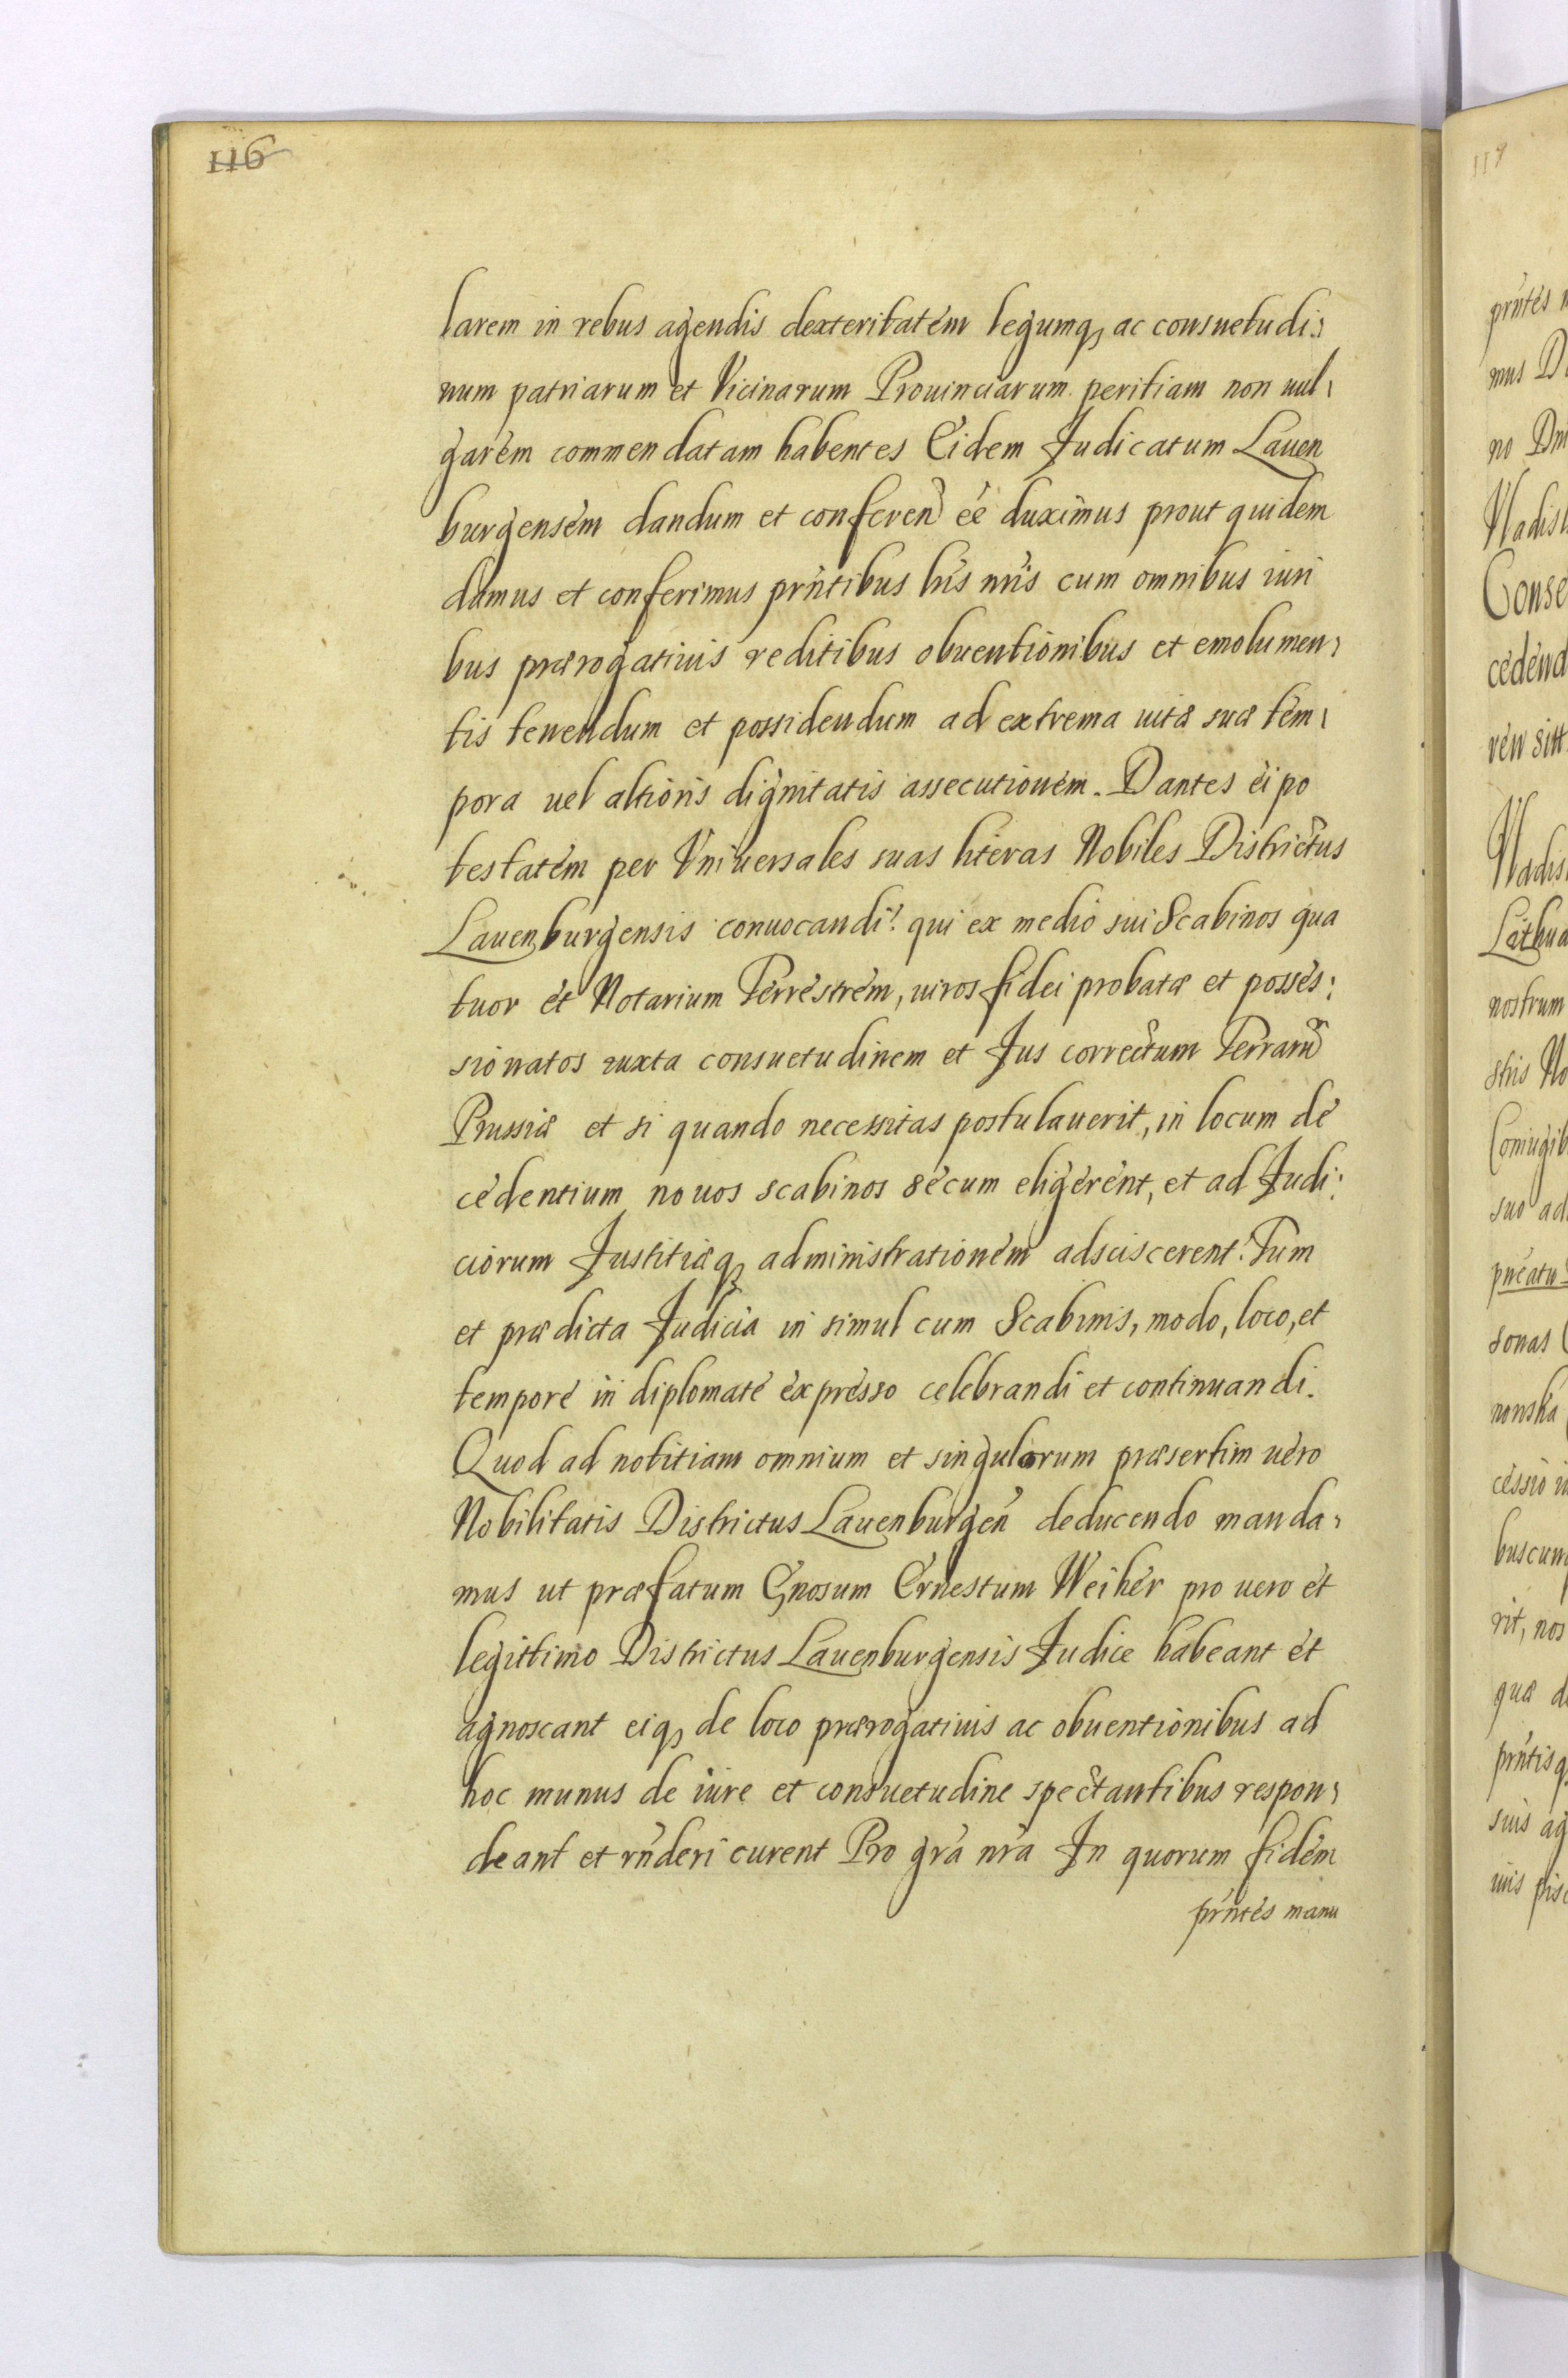 116
larem in rebus agendis dexteritatem legumq, ac consuetudi:
num patriarum et Vicinarum Prouinciarum peritiam non uul,
garem commendatam habentes Eidem Judicatum Lauen
burgensem dandum et conferen̄ éé duximus prout quidem
damus et conferimus prñtibus lr̃is nr̃is cum omnibus iuri
bus prærogatiuis reditibus obuentionibus et emolumen,
tis tenendum et possidendum ad extrema uitæ suæ tem,
pora uel altioris dignitatis assecutionem. Dantes ei po
testatem per Vniuersales suas literas Nobiles Districtus
Lauenburgensis conuocandi: qui ex medio sui Scabinos qua
tuor et Notarium Terrestrem, uiros fidei probatæ et posses:
sionatos iuxta consuetudinem et Jus correctum Terrarū
Prussiæ et si quando necessitas postulauerit, in locum de
cedentium nouos scabinos secum eligerent, et ad Judi:
ciorum Justitiæq, administrationem adsciscerent: Tum
et prædicta Judicia in simul cum Scabinis, modo, loco, et
tempore in diplomate expresso celebrandi et continuandi.
Quod ad notitiam omnium et singulorum præsertim uero
Nobilitatis Districtus Lauenburgen̄ deducendo manda,
mus ut præfatum Gnosum Ernestum Weiher pro uero et
legittimo Districtus Lauenburgensis Judice habeant et
agnoscant eiq, de loco prærogatiuis ac obuentionibus ad
hoc munus de iure et consuetudine spectantibus respon,
deant et rñderi curent Pro gr̃a nr̃a In quorum fidem
prñtes manu
119
prñtes
mus
no
Conse
nostrum
suo ad
sonas
nonska
cessio
rit, nos
quæ
prñtis
suis